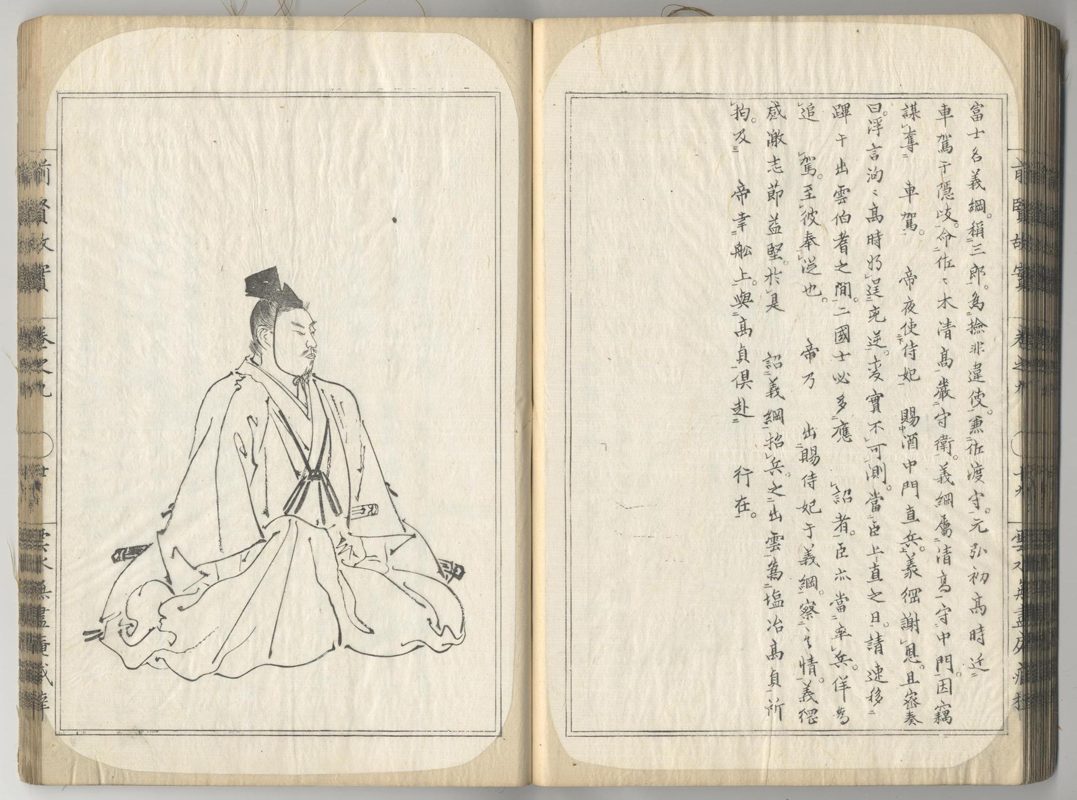 富士名義綱。稱三郎。為撿非違使。兼佐渡守。元弘初高時迁
車駕于隠岐。命佐〻木清高嚴守衛。義綱屬清高守中門。因竊
謀奪 車駕。 帝夜使侍妃 賜酒中門直兵。義綱謝恩。且密奏
曰。浮言洶〻高時將逞兇逆。変實不可測。當臣上直之日。請速移
蹕于出雲伯耆之間。二國士必多應 詔者。臣亦當率兵。佯為
追 駕。至彼奉従也。 帝乃 出賜侍妃于義綱。察其情。義綱
感激志節益堅。於是 詔義綱招兵。之出雲為塩冶高貞所
拘。及 帝幸舩上。與高貞倶赴 行在。
前賢故實
卷之九
雲水無盡庵藏梓